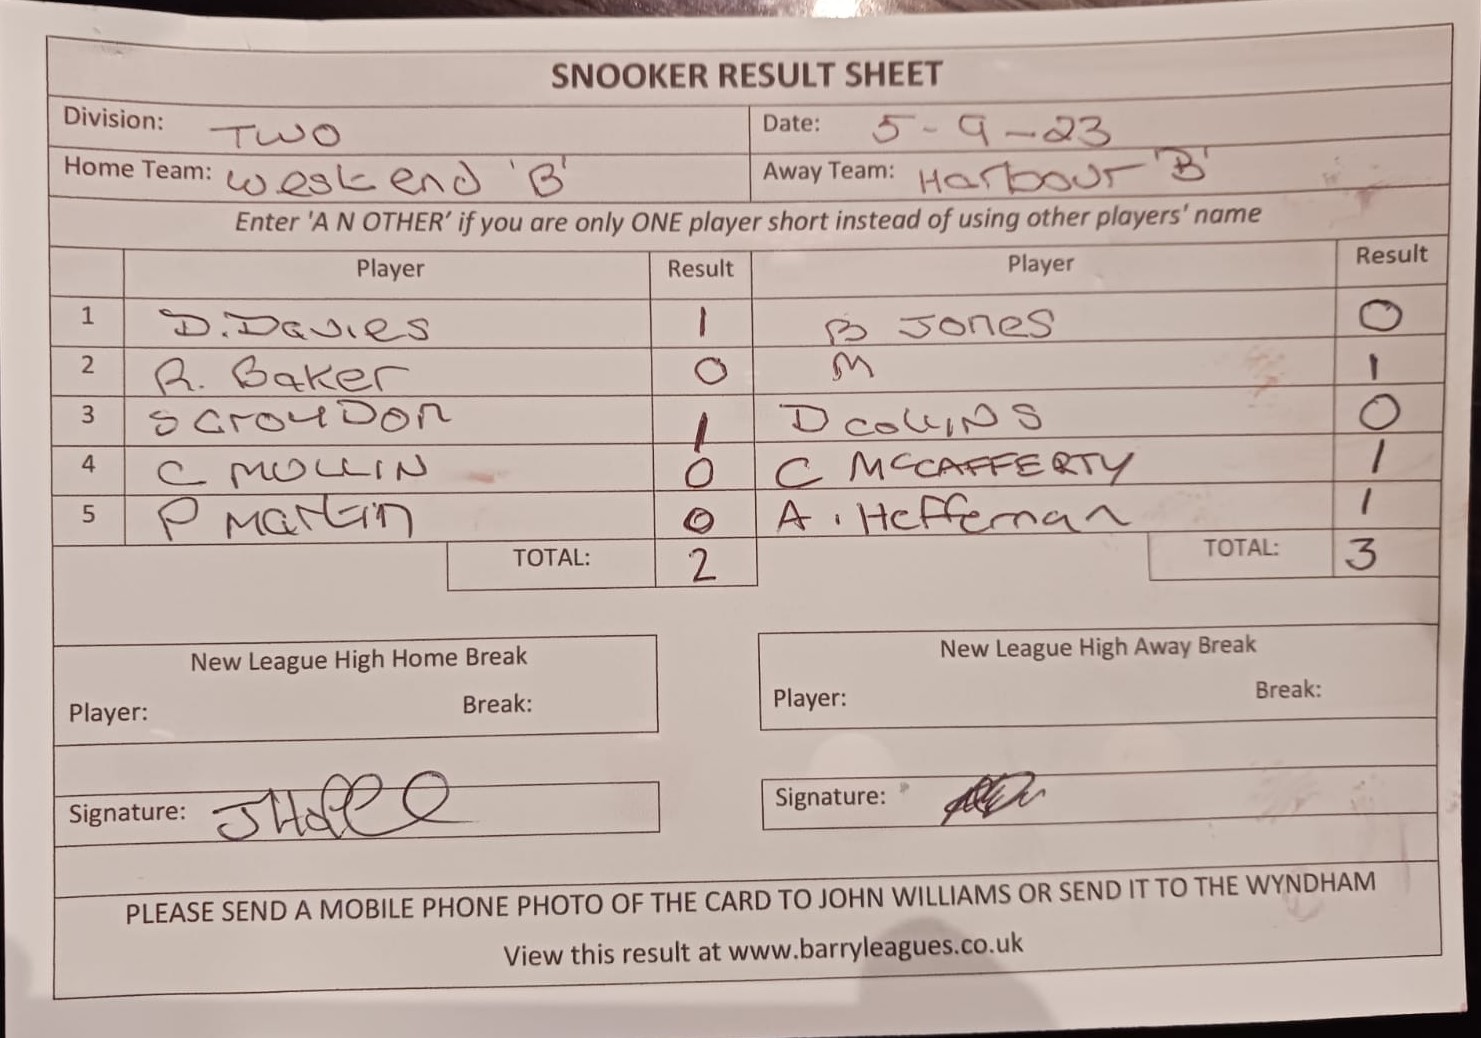 SNOOKER RESULT SHEET
Division: TWO Date: 5-9-23
Home Team: Weskend 'B' Away Team: Harbour 'B'
Enter 'A N OTHER' if you are only ONE player short instead of using other players' name
Player Result Player Result
1 D. Davies 1 B Jones 0
2 R. Baker 0 M 1
3 S Croydon 1 D Collins 0
4 C MULLIN 0 C McCAFFERTY 1
5 P Martin 0 A. Heffernan 1
TOTAL: 2 TOTAL: 3
New League High Home Break New League High Away Break
Player: Break: Player: Break:
Signature: Signature:
PLEASE SEND A MOBILE PHONE PHOTO OF THE CARD TO JOHN WILLIAMS OR SEND IT TO THE WYNDHAM
View this result at www.barryleagues.co.uk